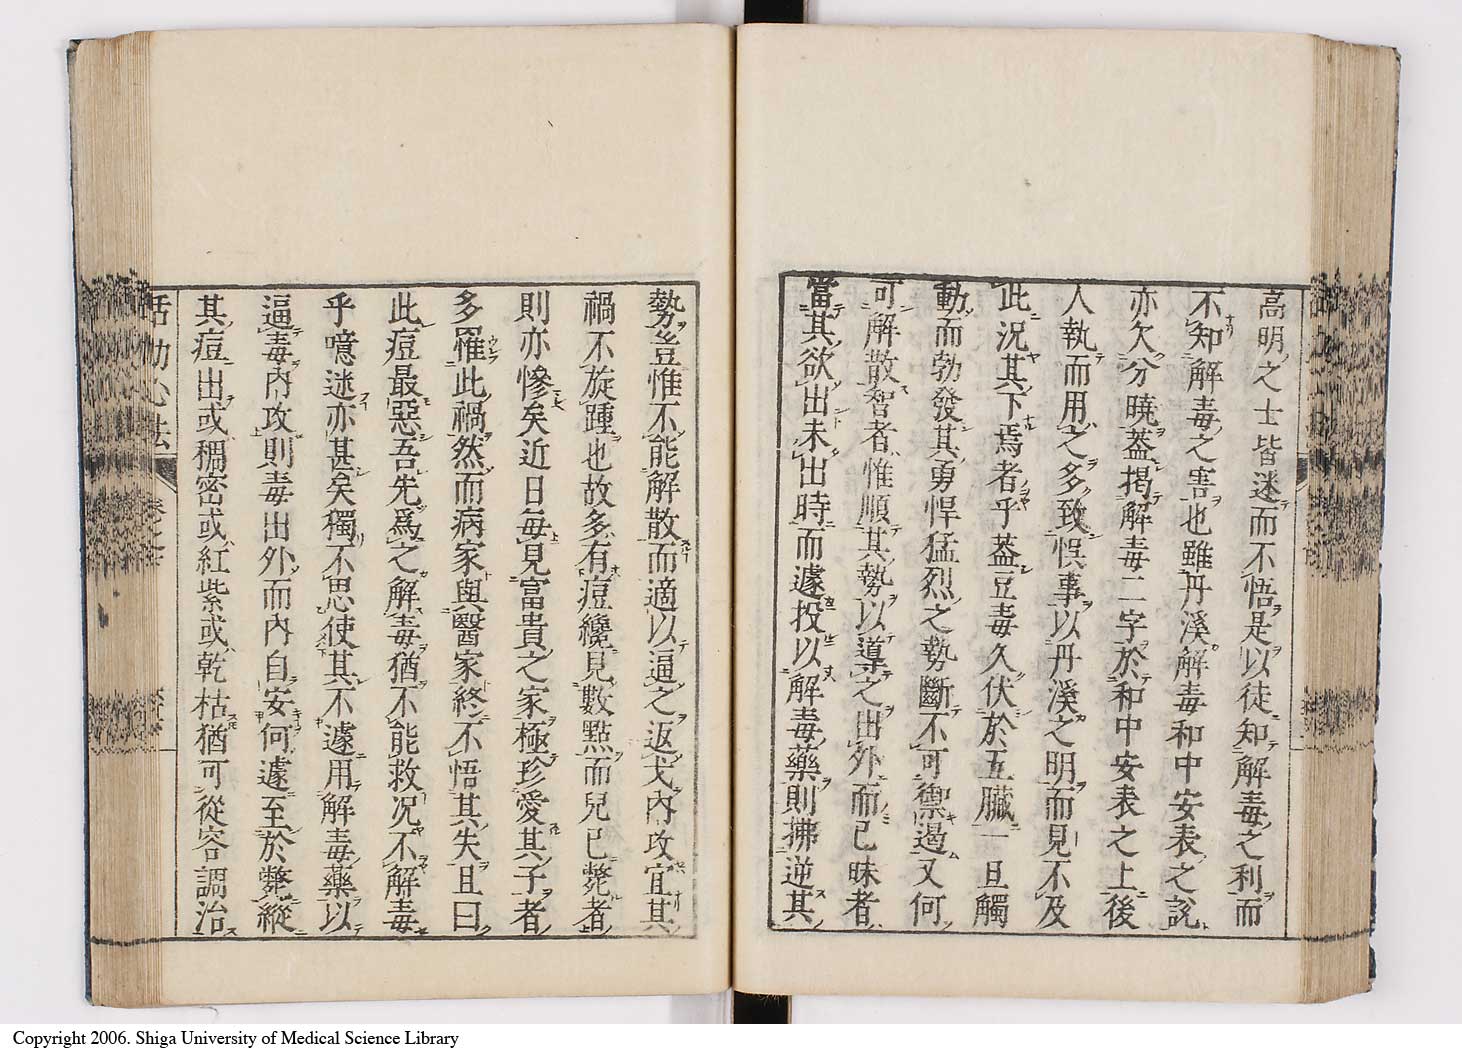 高明之士皆迷而不悟是以徒知解毒之利而
不知解毒之害也雖丹溪解毒和中安表之説
亦欠分曉葢揭解毒二字於和中安表之上後
人執而用之多致悞事以丹溪之明而見不及
此況其下焉者乎葢豆毒久伏於五臟一旦觸
動而勃發其勇悍猛烈之勢斷不可禦遏又何
可解散智者惟順其勢以導之出外而已昧者
當其欲出未出時而遽投以解毒藥則拂逆其
勢豈惟不能解散而適以逼之返戈內攻宜其
禍不旋踵也故多有痘纔見數點而兒已斃者
則亦慘矣近日每見富貴之家極珍愛其子者
多罹此禍然而病家與醫家終不悟其失且曰
此痘最惡吾先為之解毒猶不能救況不解毒
乎噫迷亦甚矣獨不思使其不遽用解毒藥以
逼毒內攻則毒出外而內自安何遽至於斃縱
其痘出或稠密或紅紫或乾枯猶可從容調治
活幼心法
Copyright 2006. Shiga University of Medical Science Library